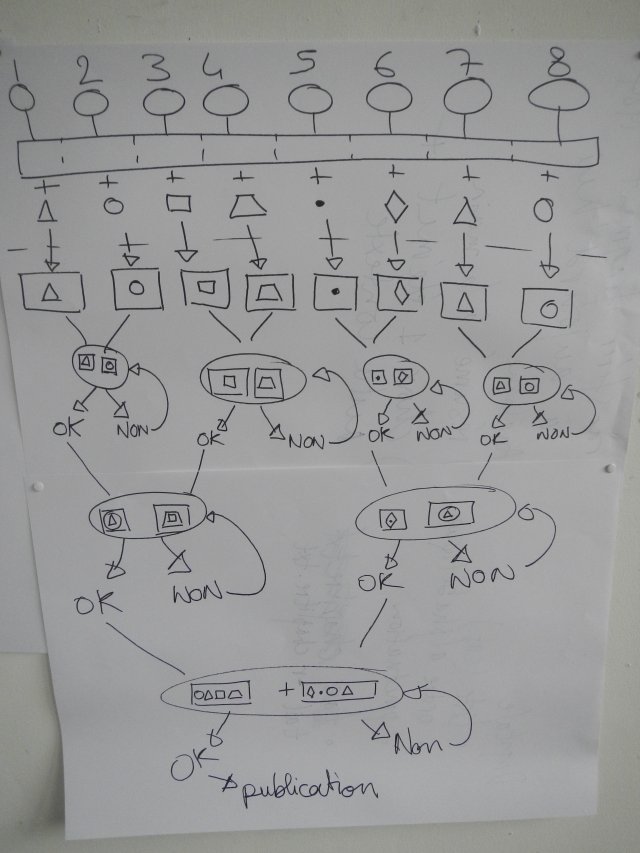 1 2 3 4 5 6 7 8
+ + + + + + + +
OK NON OK NON OK NON OK NON
OK NON OK NON
+
OK Non
publication